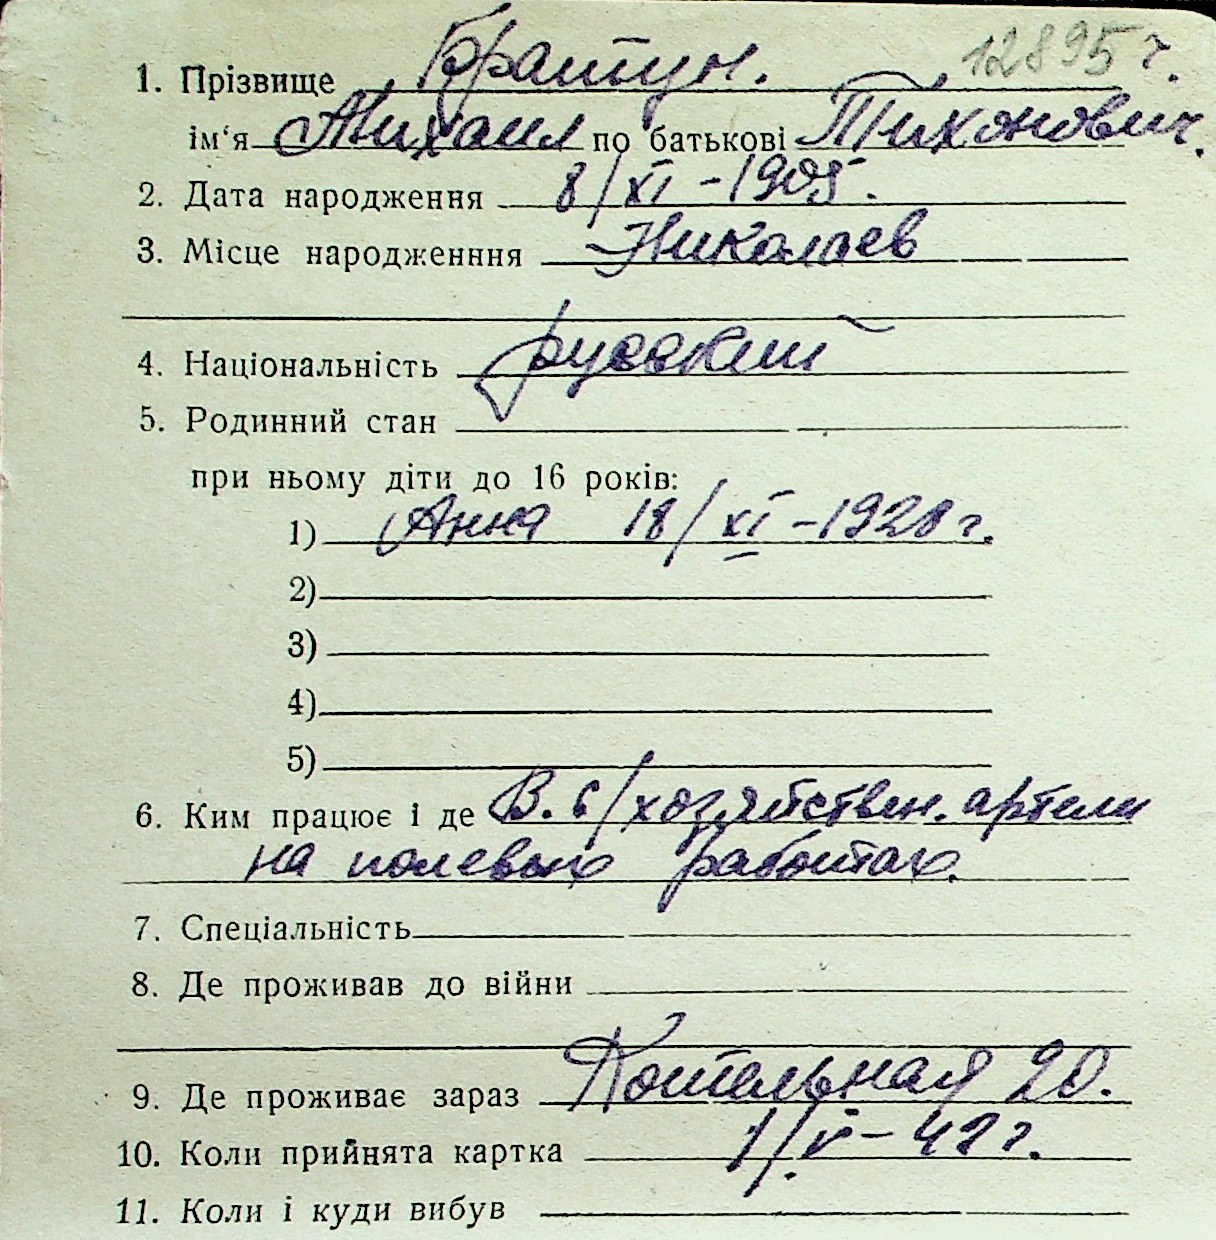 12895 г.
1. Прізвище Братун.
ім'я Михаил по батькові Тихонович.
2. Дата народження 8/XI - 1905.
3. Місце народженння Николаев
4. Національність русский
5. Родинний стан
при ньому діти до 16 років:
1) Анна 18/XI - 1928 г.
2)
3)
4)
5)
6. Ким працює і де В. с/хозяйствен. артели
на полевых работах.
7. Спеціальність
8. Де проживав до війни
9. Де проживає зараз Котельная 20.
10. Коли прийнята картка 1/V - 42 г.
11. Коли і куди вибув